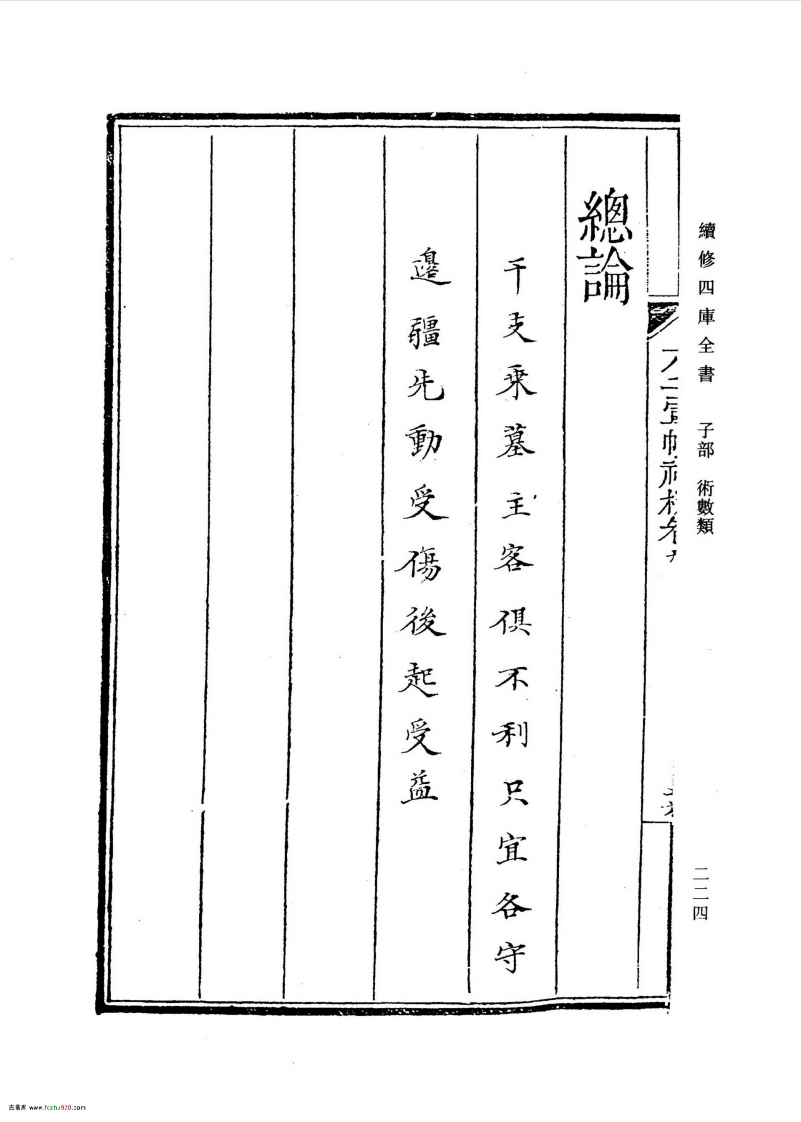 續修四庫全書 子部 術數類
二二四
總論
干支乗墓主客俱不利只宜各守
邊疆先動受傷後起受益
古籍库 www.fczhu920.com